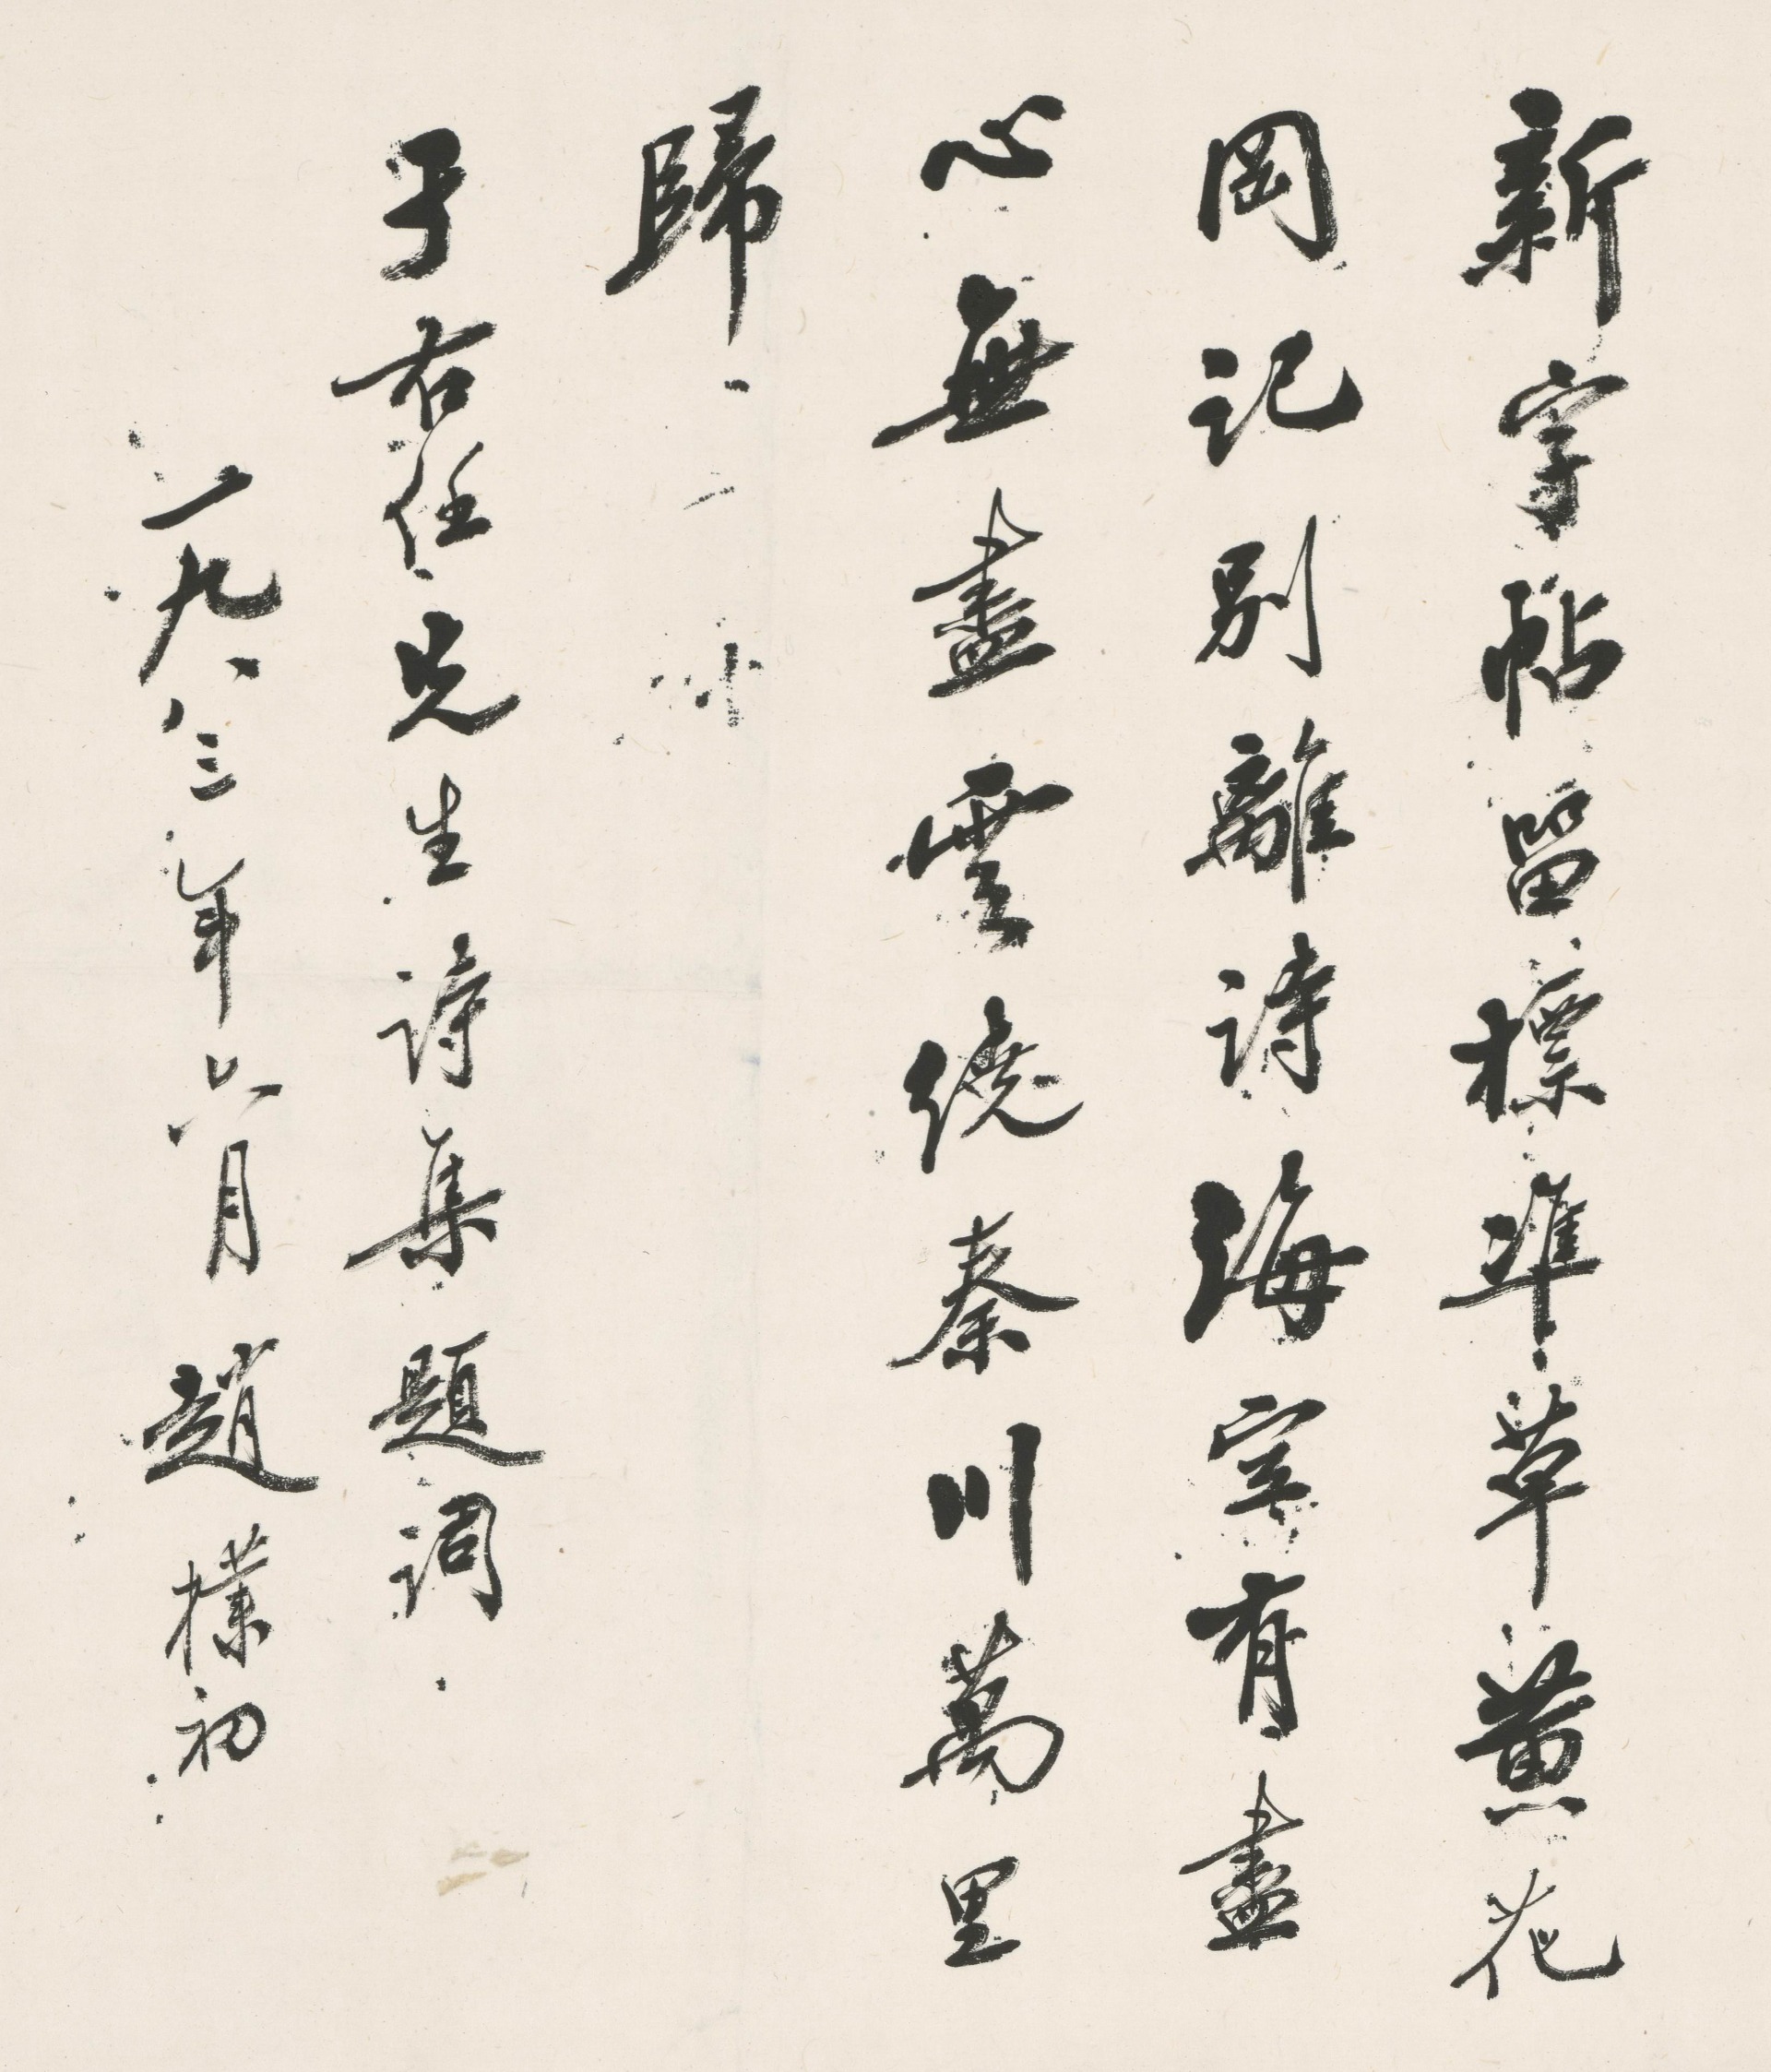 新字帖留標準草黄花
岡記別離詩海字有盡
心無盡雲繞秦川萬里
歸
于右任先生詩集題詞
一九八三年六月 趙樸初